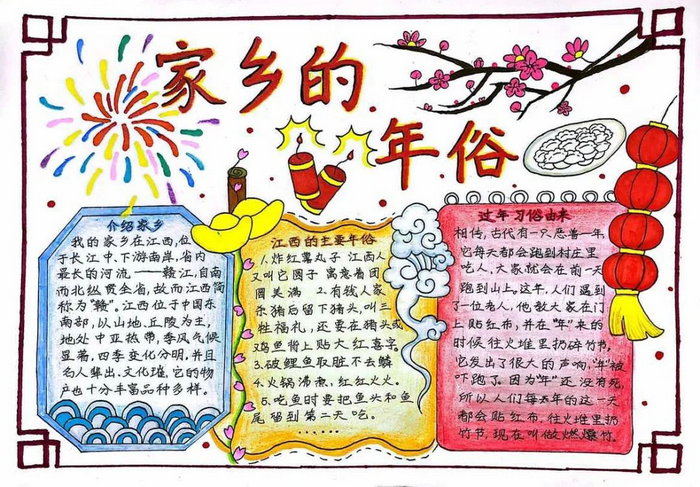 家乡的
年俗
介绍家乡
我的家乡在江西,位
于长江中、下游南岸,省内
最长的河流——赣江,自南
而北纵贯全省,故而江西简
称为“赣”。江西位于中国东
南部,以山地、丘陵为主,
地处中亚热带,季风气候
显著,四季变化分明,并且
名人辈出,文化璀,它的物
产也十分丰富品种多样。
江西的主要年俗
1.炸红薯丸子 江西人
又叫它圆子 寓意着团
圆美满 2.有钱人家
杀猪后留下猪头,叫三
牲福礼,还要在猪头或
鸡鱼背上贴大红喜字
3.破鲤鱼取脏不去鳞
4.火锅沸煮,红红火火。
5.吃鱼时要把鱼头和鱼
尾留到第二天吃。
……
过年习俗由来
相传,古代有一只恶兽—年,
它每天都会跑到村庄里
吃人,大家就会在前一天
跑到山上。这年,人们遇到
了一位老人,他教大家在门
上贴红布,并在“年”来的
时候往火堆里扔碎竹节,
它发出了很大的声响,“年”被
吓跑了。因为“年”还没有死,
所以人们每去年的这一天
都会贴红布,往火堆里扔
竹节,现在叫做燃爆竹。